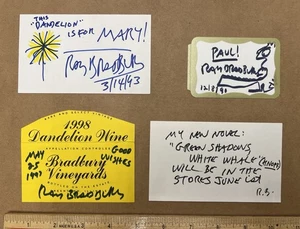 THIS
"DANDELION"
IS FOR MARY!
RAY BRADBURY
3/14/93
PAUL!
RAY BRADBURY
12/8/90
1998
Dandelion Wine
APPELLATION CONTROLEE
MAY
25
1997
GOOD
WISHES
Bradbury
Vineyards
RAY BRADBURY
MY NEW NOVEL:
"GREEN SHADOWS,
WHITE WHALE" (KNOPF)
WILL BE IN THE
STORES JUNE 1st
R.B.